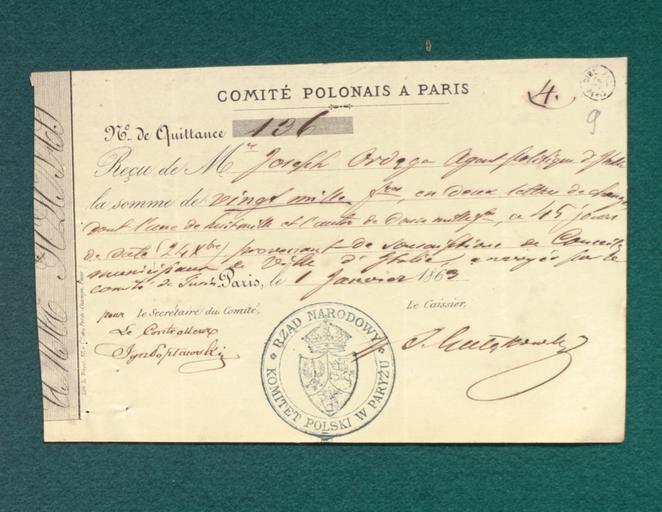 COMITÉ POLONAIS A PARIS
4.
9
No. de Quittance 136
Reçu de Mr Joseph Ordęga Agent politique d'Italie
la somme de vingt mille frcs, en deux lettres de change
dont l'une de huit mille et l'autre de douze mille frs, a 45 jours
de date (24 Xbre) provenant de souscriptions de Conseils
municipaux de Ville d'Italie, envoyés par le
comité de Turin. Paris, le 1 Janvier 1863
pour le Secrétaire du Comité,
Le Caissier,
Le Controlleur
RZĄD NARODOWY
KOMITET POLSKI W PARYŻU